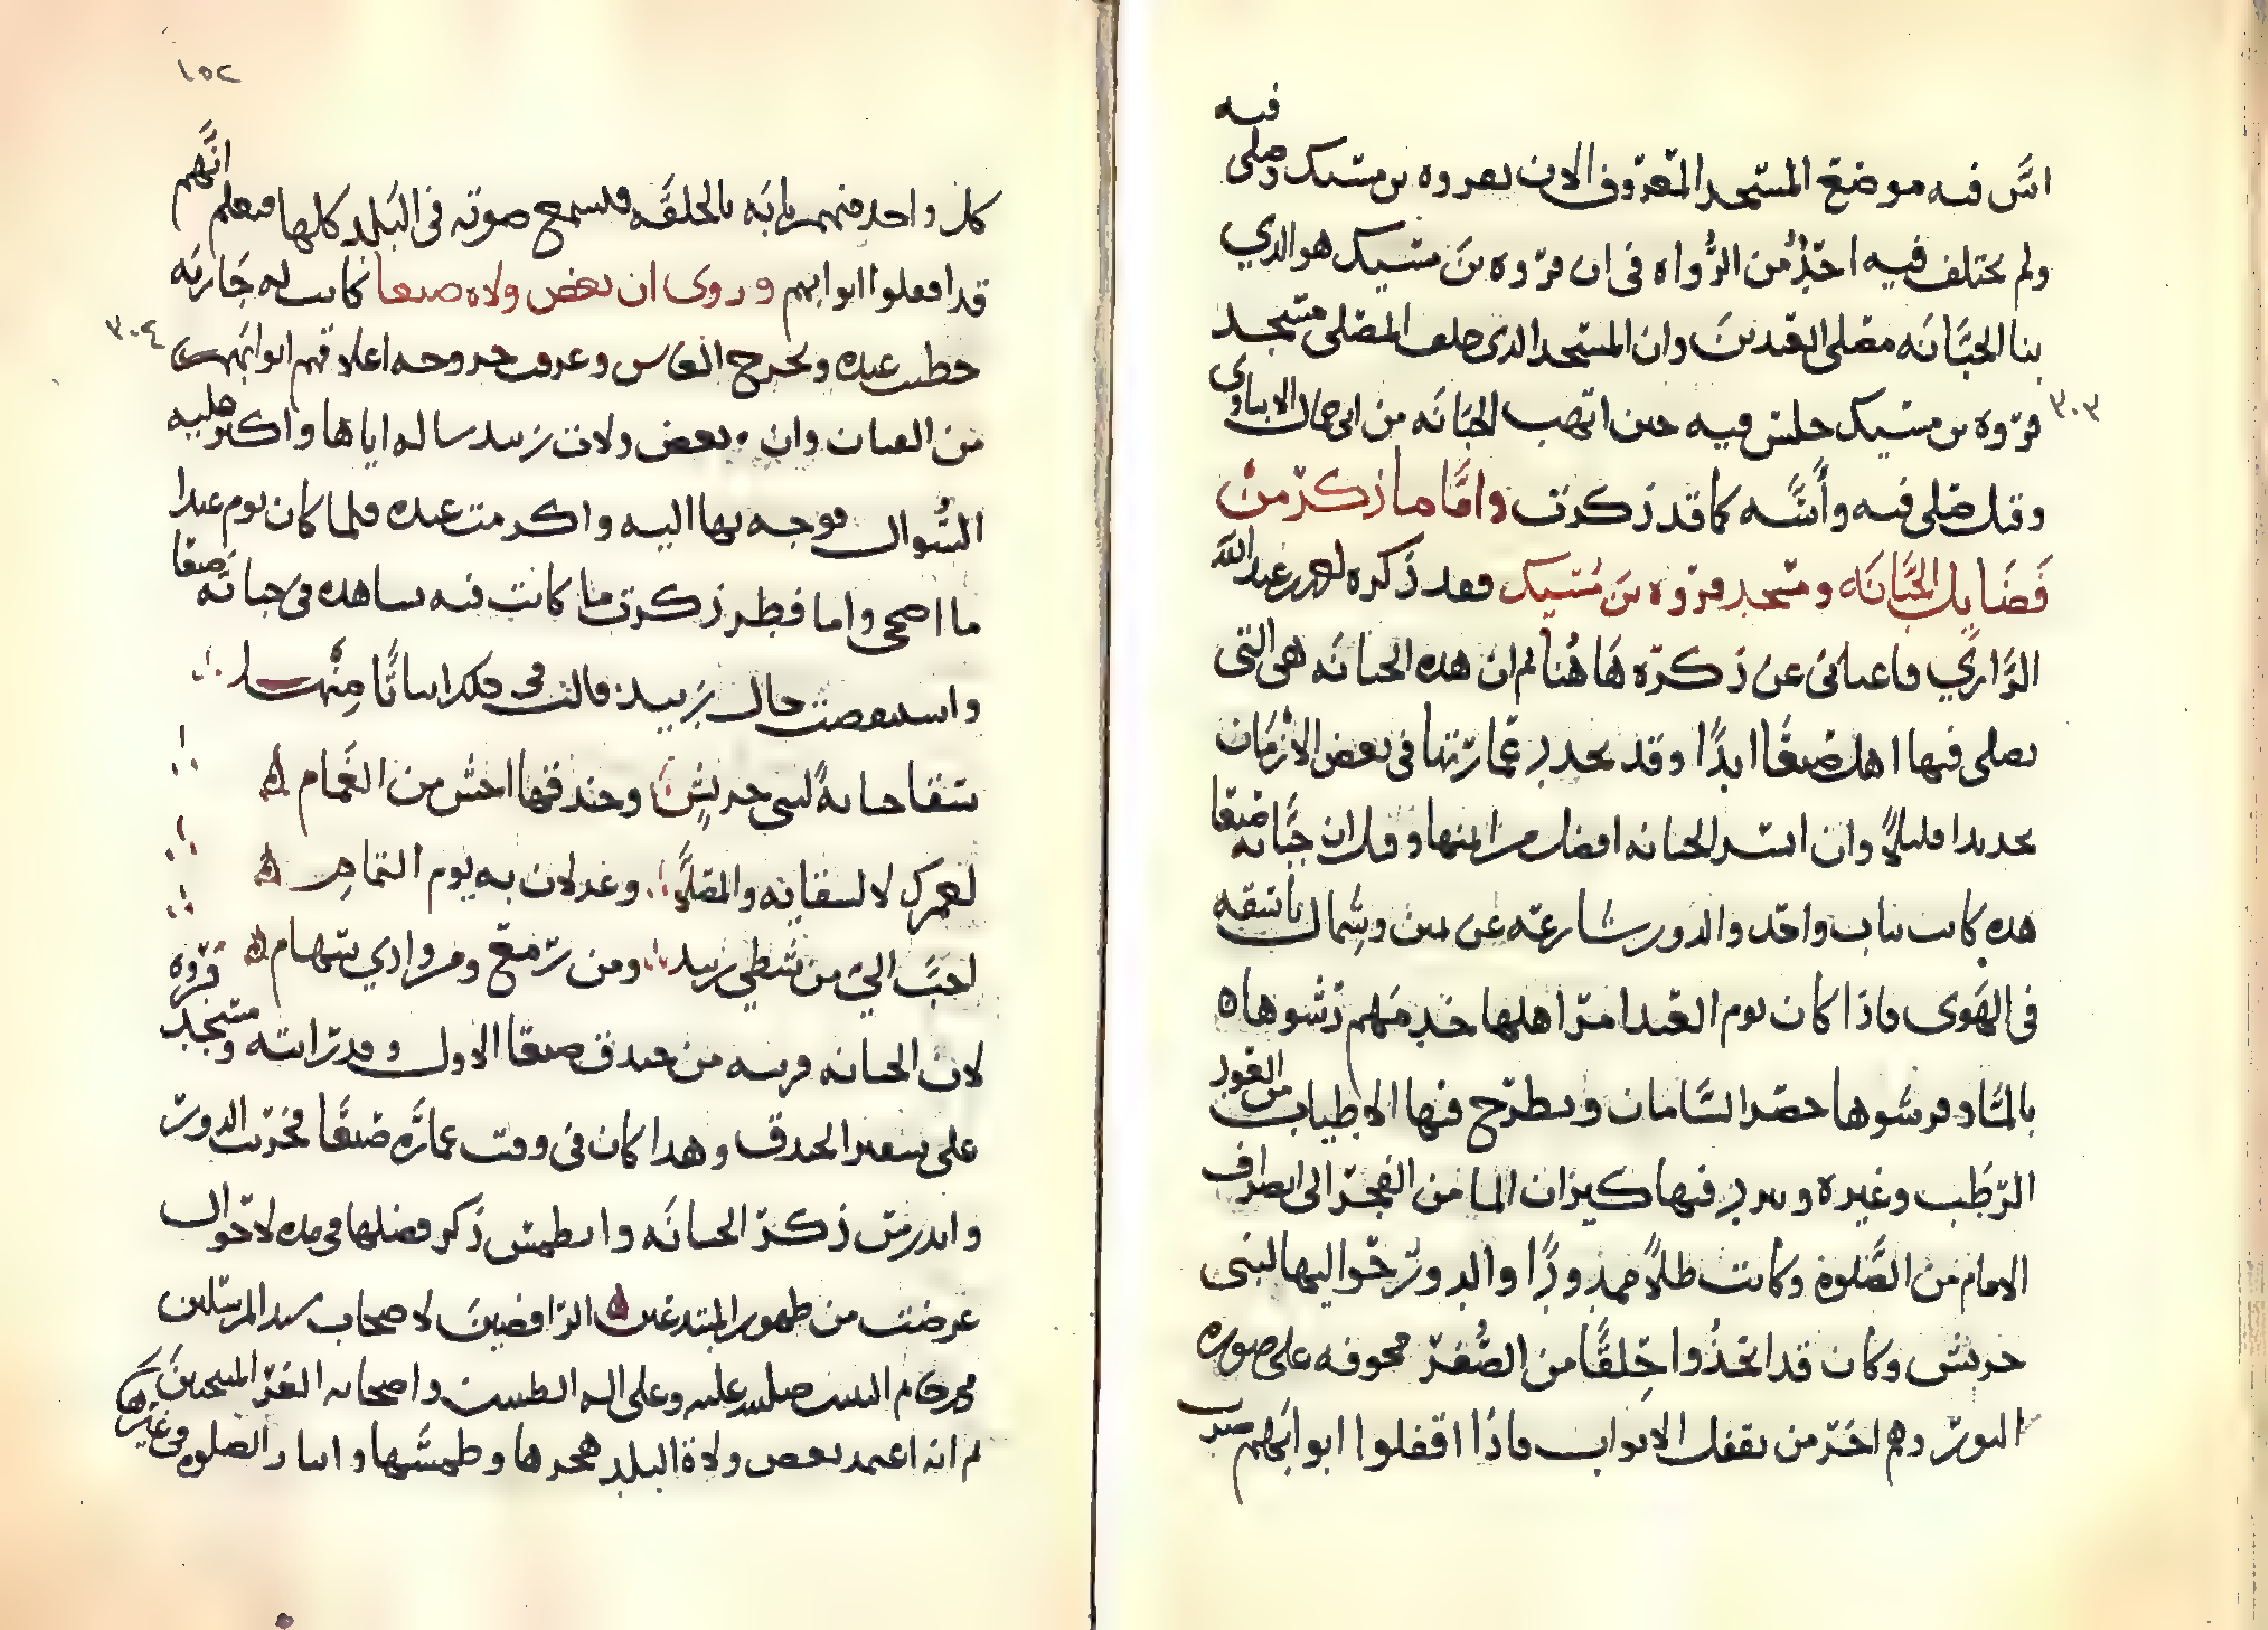 فيه
اسَّس فيه موضع المسجد المعروف الان بفروه بن مسيك وصلى
ولم يختلف فيه احدٌ من الرُّواه فى ان فروه بن مسيك هو الذي
بنا الجبَّانه مصلى العيدين وان المسجد الذى خلف المصلى مسجد
٣٠٣
فروه بن مسيك جلس فيه حين اتهب الجبانه من ابى جمال الابناوى
وقيل صلى فيه وأسَّسه كما قد ذكرت وامَّا ما ذكر من
فضايل الجبَّانه ومسجد فروه بن مسيك فقد ذكره احمد بن عبد الله
الرَّازي فاغنانى عن ذكره هاهنا ثم ان هذه الجبانه هى التى
يصلى فيها اهل صنعا ابدًا وقد تجدد عمارتها فى بعض الازمان
تجديدا قليلاً وان اسس الجبانه افضل من ابنيتها وقيل ان جبَّانة صنعا
هذه كانت بباب واحد والدور شارعه عن يمين وشمال باسقه
فى الهوى فاذا كان يوم العيد امر اهلها خدمهم رشوها
بالماء وفرشوها حصر السَّامان ويطرح فيها الاطياب من العود
الرَّطب وغيره ويبرد فيها كيزان الما من الفجر الى انصراف
الامام من الصَّلوة وكانت طلاً ممدودًا والدور حواليها لبنى
حريش وكان قد اتخذوا حلقًا من الصُّفر مجوفه على صوره
البور وهم اخر من يقفل الابواب فاذا اقفلوا ابوابهم ضرب
١٥٢
كل واحد منهم بابه بالحلقه فيسمع صوته فى البلد كلها فيعلم انَّهم
قد اقفلوا ابوابهم وروى ان بعض ولاه صنعا كانت له جاريه
٣٠٤
حظيت عنده ويخرج الناس وعرف خروجه اغلاقهم ابوابهم
من العيان وان بعض ولات زبيد ساله اياها واكثر عليه
السُّوال فوجه بها اليه واكرمت عنده فلما كان يوم عيد
ما اضحى واما فطر ذكرت ما كانت فيه بساهده فى جبانه صنعا
واستنقصت حال زبيد فقالت فى ذلك ابياتًا منها
سقا جبانةً لبنى حريش وخندقها احش من الغمام
لعمرك لا لسقايه والمصلَّى وغدلان به يوم التمام
احبَّ اليَّ من شطي زبيد ومن رمع ومن وادي سهام
لان الجبانه قريبه من خندق صنعا الاول وقد رايته ومسجد فروه
على شفير الخندق وهذا كان فى وقت عماره صنعا فخربت الدور
واندرس ذكر الجبانه وانطمس ذكر فضلها فى مده لاحوال
عرضت من ظهور المبتدعين الرافضين لاصحاب سيد المرسلين
محمد خاتم النبيين صلى الله عليه وعلى اله الطيبين واصحابه الغرّ المنتجبين
ثم انه اعتمد بعض ولاة البلد هجرها وطمسها واساد الصلوه فى غيرها